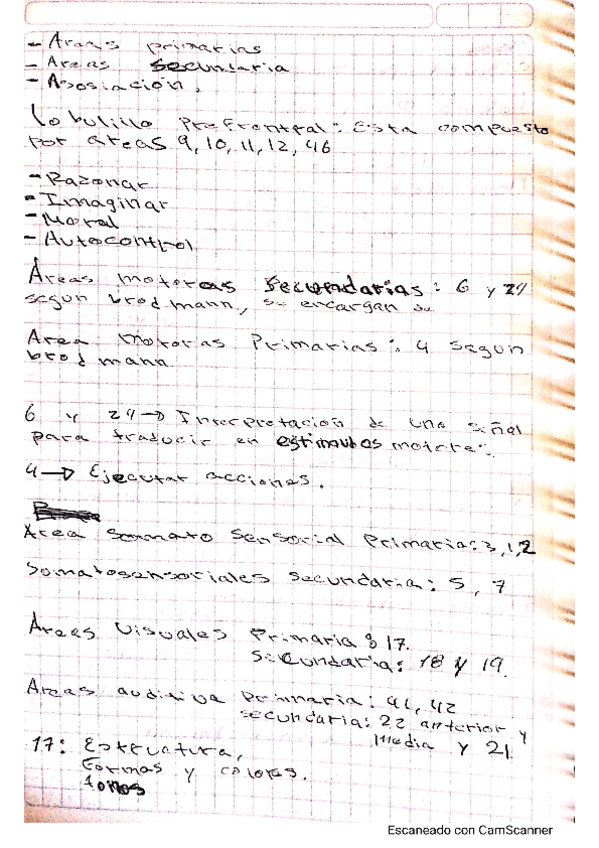 - Areas primarias
- Areas secundaria
- Asosiación.
Lobulillo Prefrontal: Esta compuesto
por areas 9, 10, 11, 12, 46
- Razonar
- Imaginar
- Moral
- Autocontrol
Áreas motoras secundarias: 6 y 24
segun brodmann, se encargan
Area motoras Primarias: 4 segun
brodmann
6 y 24 → Interpretación de una señal
para traducir en estimulos
4 → Ejecutar acciones.
Area Sensorial Primaria: 3, 1, 2
Somatosensoriales secundaria: 5, 7
Areas Visuales Primaria: 17.
Secundaria: 18 y 19.
Areas auditiva primaria: 41, 42
secundaria: 22 anterior y
media y 21.
17: Estructura,
formas y colores.
tonos
Escaneado con CamScanner